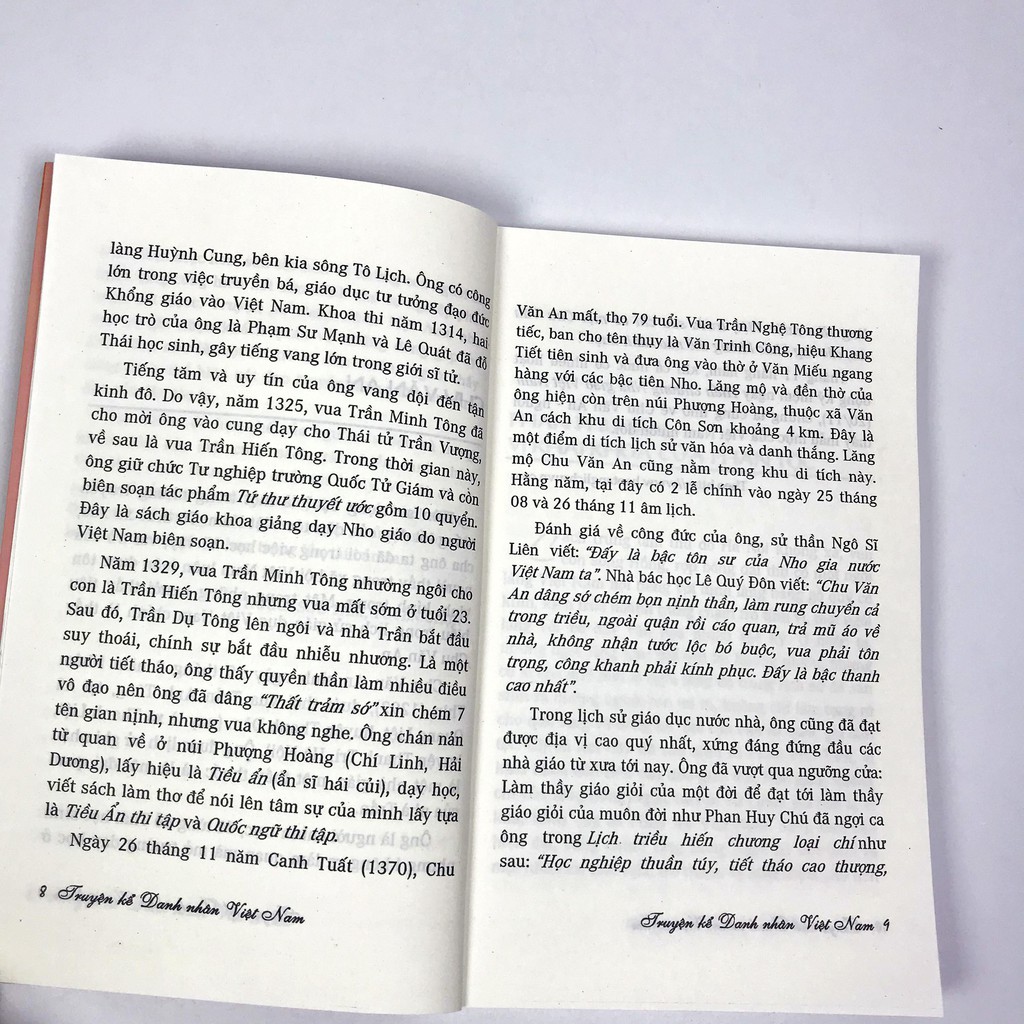 làng Huỳnh Cung, bên kia sông Tô Lịch. Ông có công
lớn trong việc truyền bá, giáo dục tư tưởng đạo đức
Khổng giáo vào Việt Nam. Khoa thi năm 1314, hai
học trò của ông là Phạm Sư Mạnh và Lê Quát đã đỗ
Thái học sinh, gây tiếng vang lớn trong giới sĩ tử.
Tiếng tăm và uy tín của ông vang dội đến tận
kinh đô. Do vậy, năm 1325, vua Trần Minh Tông đã
cho mời ông vào cung dạy cho Thái tử Trần Vượng,
về sau là vua Trần Hiến Tông. Trong thời gian này,
ông giữ chức Tư nghiệp trường Quốc Tử Giám và còn
biên soạn tác phẩm Tứ thư thuyết ước gồm 10 quyển.
Đây là sách giáo khoa giảng dạy Nho giáo do người
Việt Nam biên soạn.
Năm 1329, vua Trần Minh Tông nhường ngôi cho
con là Trần Hiến Tông nhưng vua mất sớm ở tuổi 23.
Sau đó, Trần Dụ Tông lên ngôi và nhà Trần bắt đầu
suy thoái, chính sự bắt đầu nhiễu nhương. Là một
người tiết tháo, ông thấy quyền thần làm nhiều điều
vô đạo nên ông đã dâng “Thất trảm sớ” xin chém 7
tên gian nịnh, nhưng vua không nghe. Ông chán nản
từ quan về ở núi Phượng Hoàng (Chí Linh, Hải
Dương), lấy hiệu là Tiều ẩn (ẩn sĩ hái củi), dạy học,
viết sách làm thơ để nói lên tâm sự của mình lấy tựa
là Tiều Ẩn thi tập và Quốc ngữ thi tập.
Ngày 26 tháng 11 năm Canh Tuất (1370), Chu
8 Truyện kể Danh nhân Việt Nam
Văn An mất, thọ 79 tuổi. Vua Trần Nghệ Tông thương
tiếc, ban cho tên thụy là Văn Trinh Công, hiệu Khang
Tiết tiên sinh và đưa ông vào thờ ở Văn Miếu ngang
hàng với các bậc tiên Nho. Lăng mộ và đền thờ của
ông hiện còn trên núi Phượng Hoàng, thuộc xã Văn
An cách khu di tích Côn Sơn khoảng 4 km. Đây là
một điểm di tích lịch sử văn hóa và danh thắng. Lăng
mộ Chu Văn An cũng nằm trong khu di tích này.
Hằng năm, tại đây có 2 lễ chính vào ngày 25 tháng
08 và 26 tháng 11 âm lịch.
Đánh giá về công đức của ông, sử thần Ngô Sĩ
Liên viết: “Đấy là bậc tôn sư của Nho gia nước
Việt Nam ta”. Nhà bác học Lê Quý Đôn viết: “Chu Văn
An dâng sớ chém bọn nịnh thần, làm rung chuyển cả
trong triều, ngoài quận rồi cáo quan, trả mũ áo về
nhà, không nhận tước lộc bó buộc, vua phải tôn
trọng, công khanh phải kính phục. Đấy là bậc thanh
cao nhất”.
Trong lịch sử giáo dục nước nhà, ông cũng đã đạt
được địa vị cao quý nhất, xứng đáng đứng đầu các
nhà giáo từ xưa tới nay. Ông đã vượt qua ngưỡng cửa:
Làm thầy giáo giỏi của một đời để đạt tới làm thầy
giáo giỏi của muôn đời như Phan Huy Chú đã ngợi ca
ông trong Lịch triều hiến chương loại chí như
sau: “Học nghiệp thuần túy, tiết tháo cao thượng,
Truyện kể Danh nhân Việt Nam 9